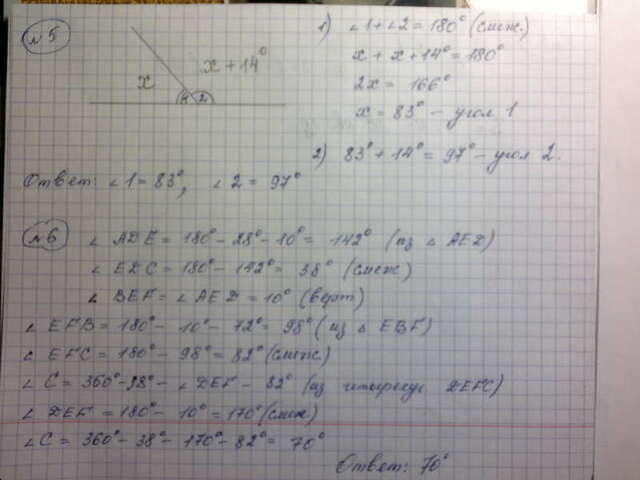 №5
x
x + 14°
1
2
1) ∠1+∠2 = 180° (смеж.)
x + x + 14° = 180°
2x = 166°
x = 83° – угол 1
2) 83° + 14° = 97° – угол 2.
Ответ: ∠1 = 83°, ∠2 = 97°
№6
∠ ADE = 180° – 28° – 10° = 142° (из △ AED)
∠ EDC = 180° – 142° = 38° (смеж)
∠ BEF = ∠ AED = 10° (верт)
∠ EFB = 180° – 10° – 72° = 98° (из △ EBF)
∠ EFC = 180° – 98° = 82° (смеж)
∠ C = 360° – 38° – ∠ DEF – 82° (из четырехуг DEFC)
∠ DEF = 180° – 10° = 170° (смеж)
∠ C = 360° – 38° – 170° – 82° = 70°
Ответ: 70°